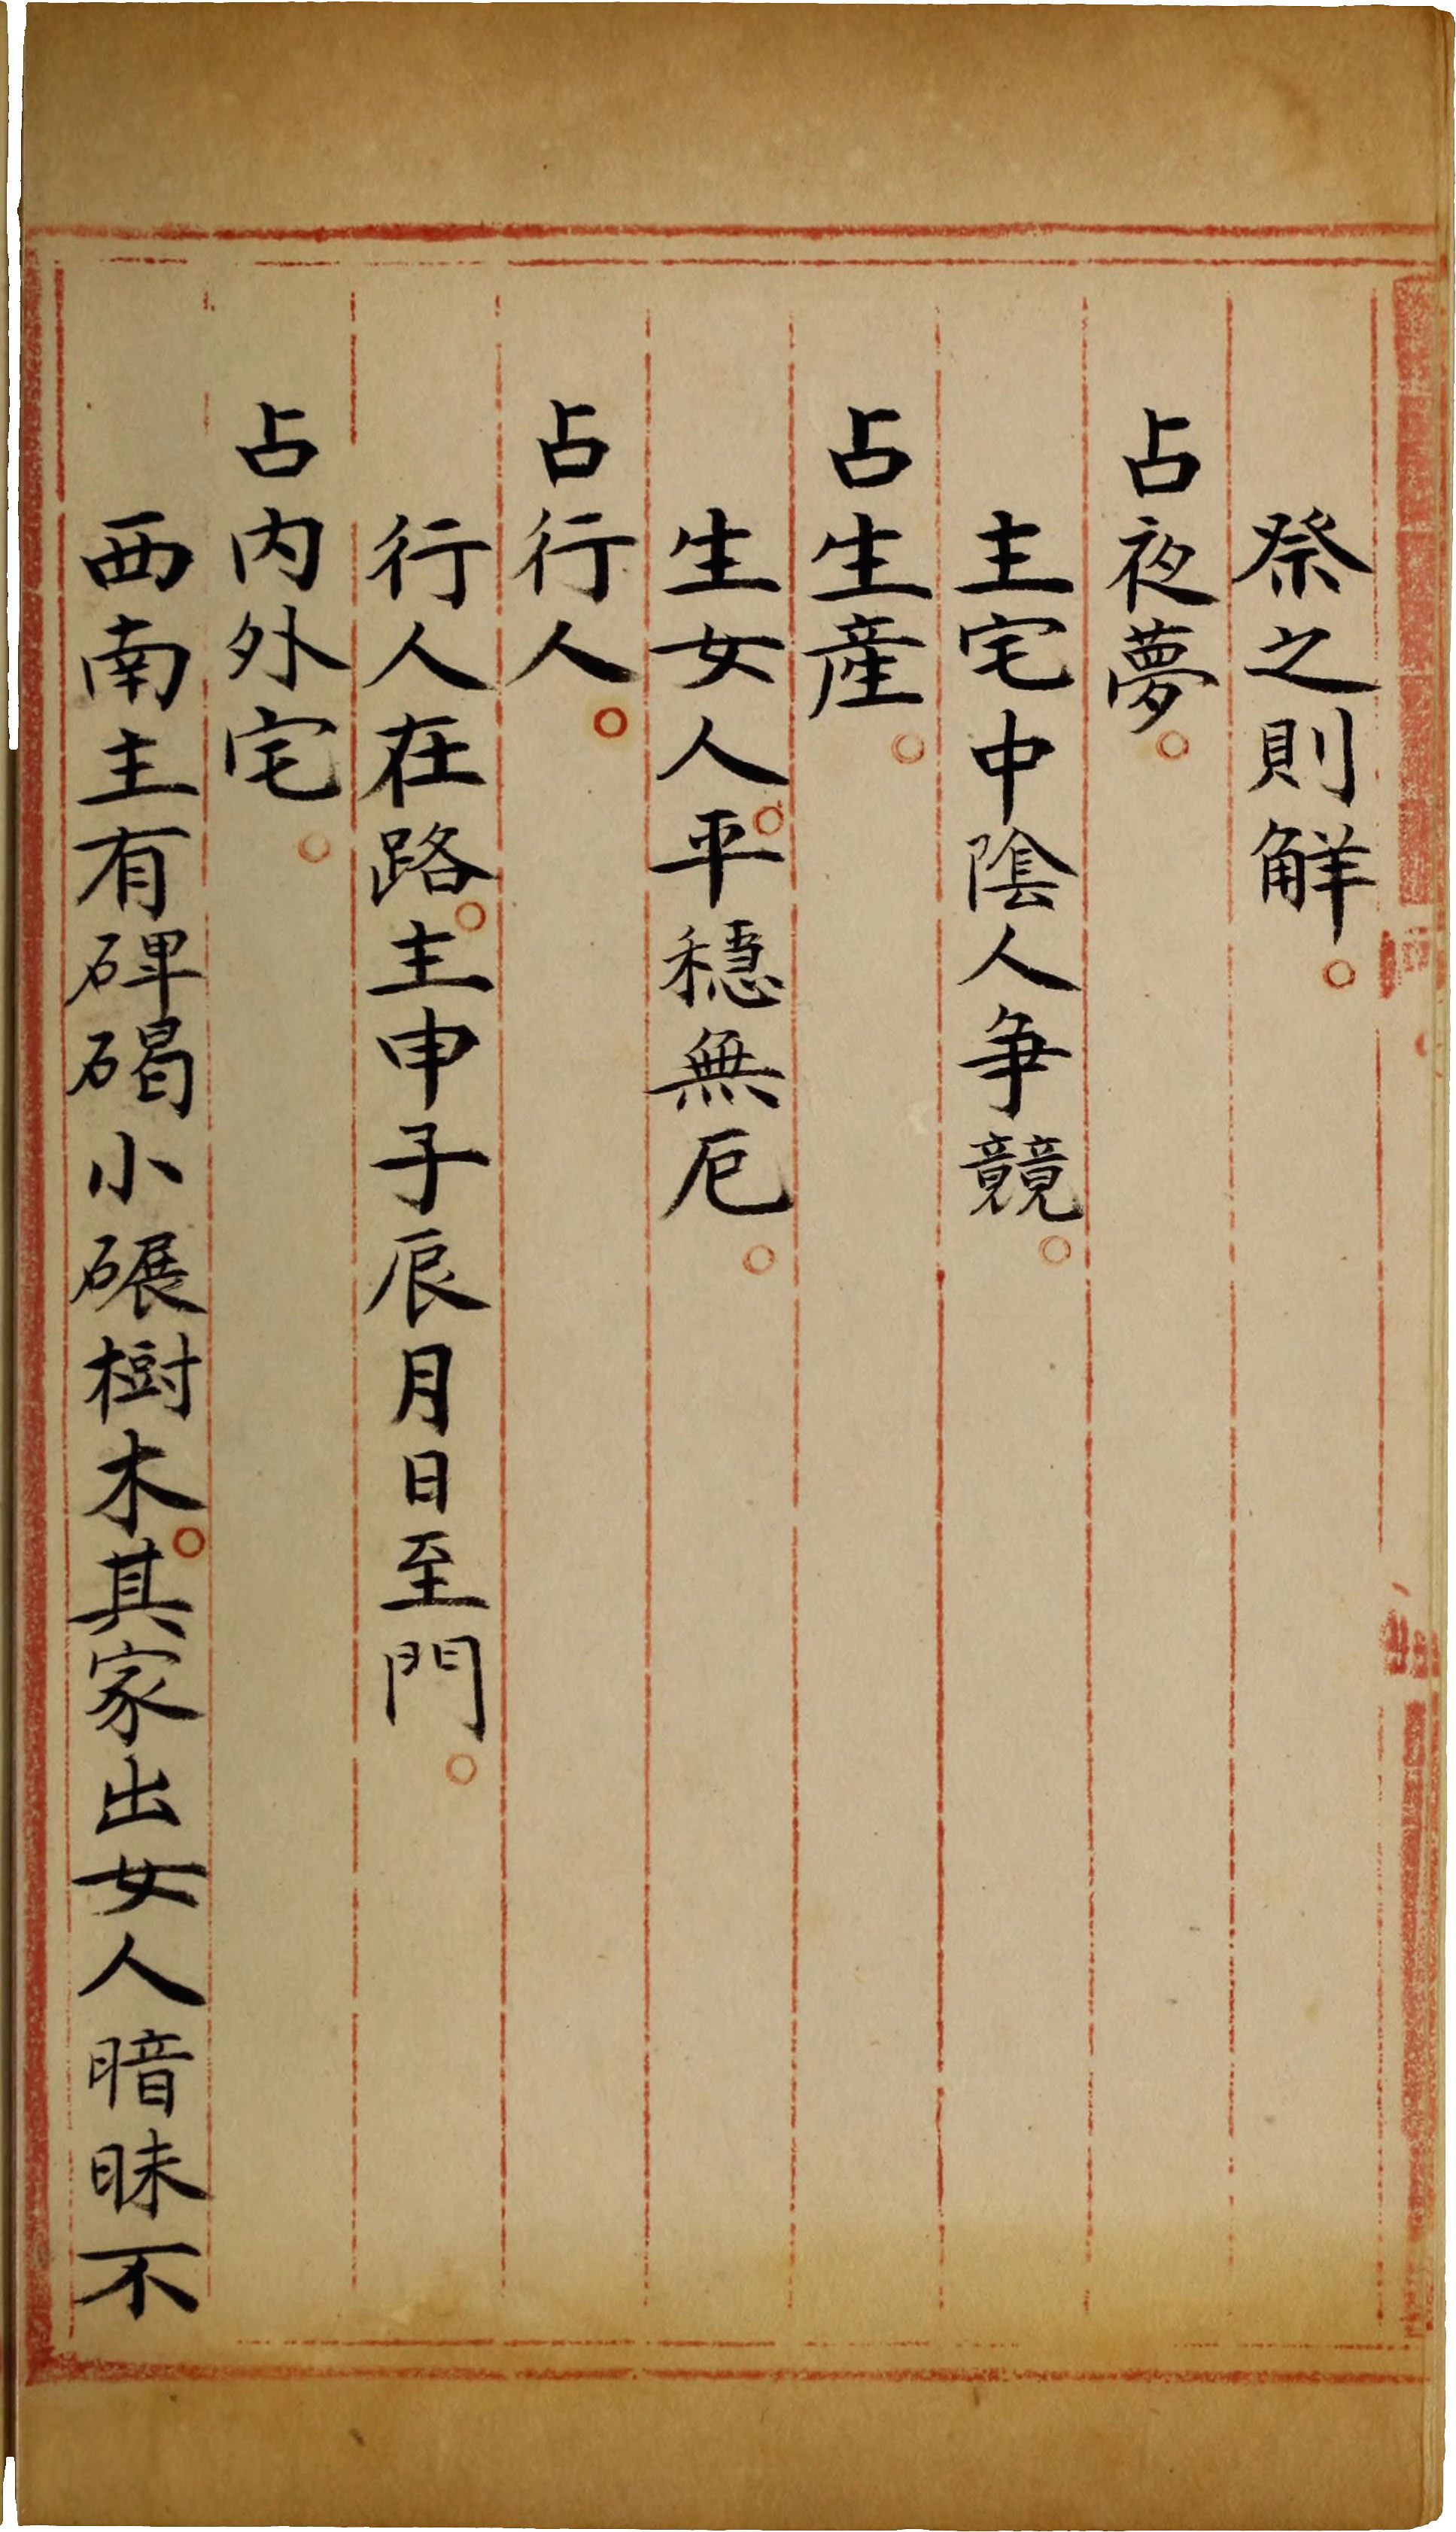 祭之則觧。
占夜夢。
主宅中陰人争競。
占生産。
生女人。平穩無厄。
占行人。
行人在路。主申子辰月日至門。
占内外宅。
西南主有碑碣小碾樹木。其家出女人暗昧不